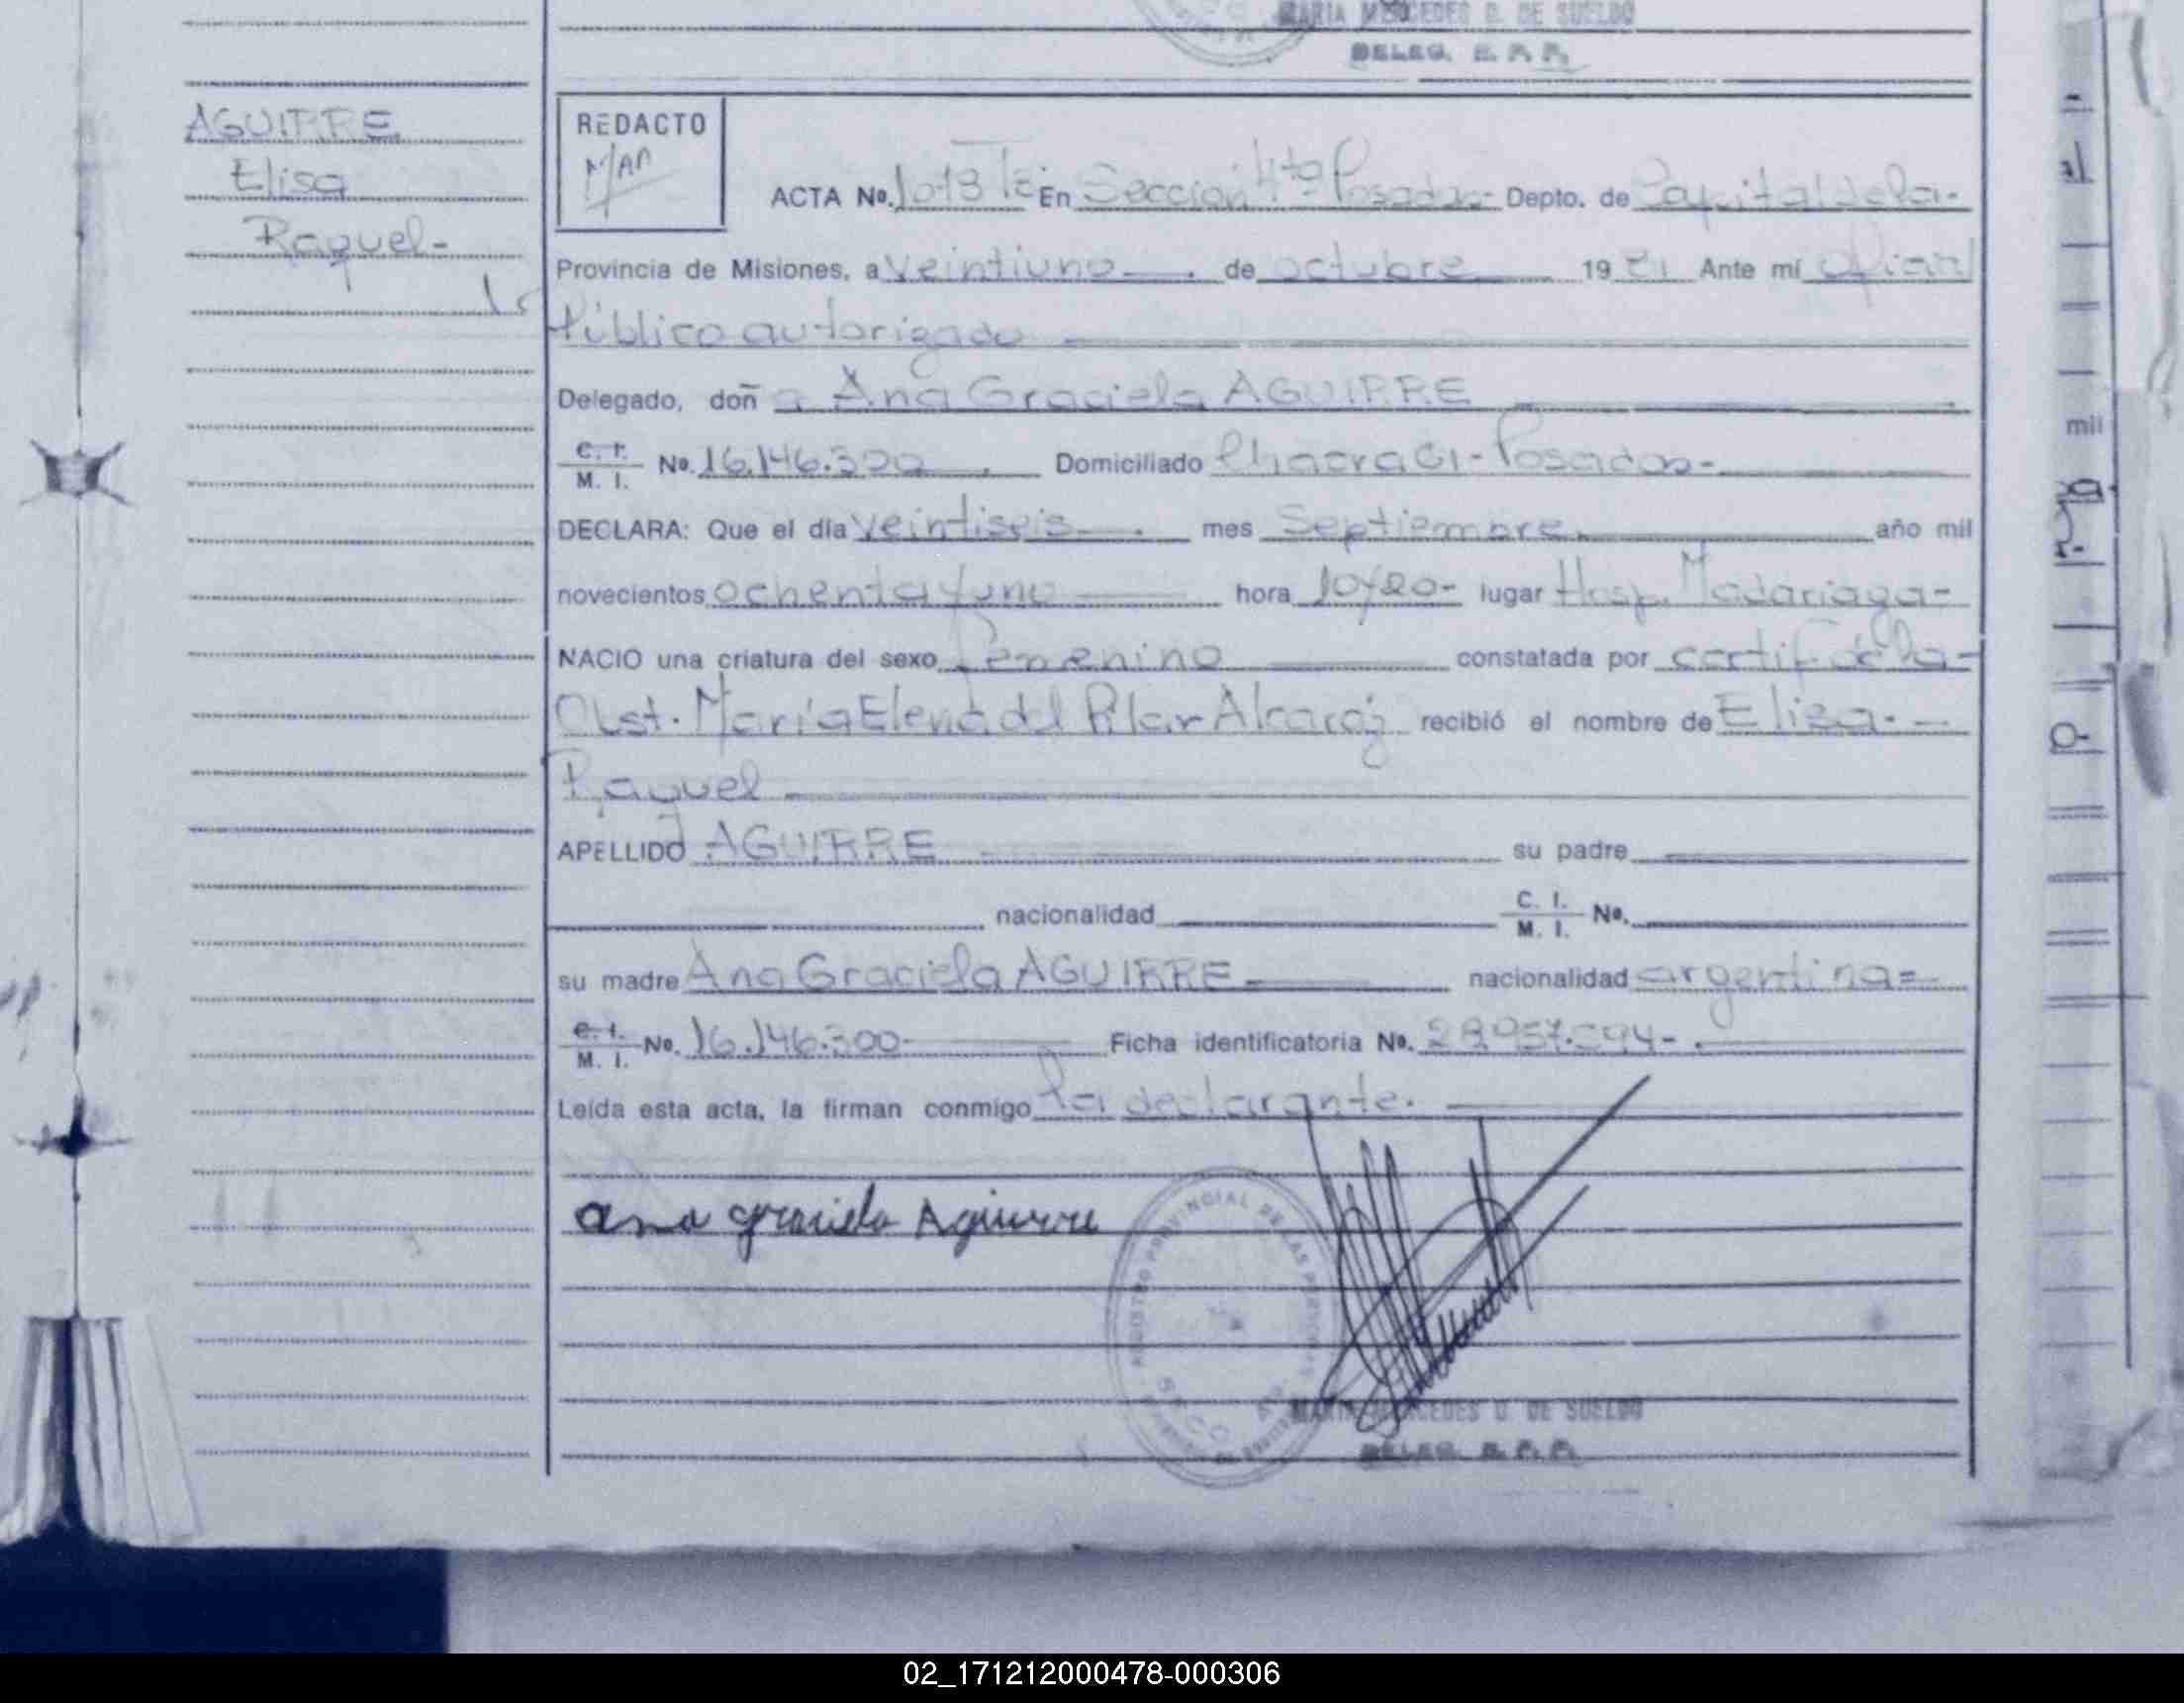 MARIA MERCEDES D. DE SUELDO
DELEG. E. P. P.
AGUIRRE
Elisa
Raquel-
REDACTO
ACTA No. En Sección 4ta Posadas- Depto. de Capital de la-
Provincia de Misiones, a veintiuno de octubre 19 81 Ante mí
Público autorizado
Delegado, doña Ana Graciela AGUIRRE
C. I.
M. I. No. 16.146.300 Domiciliado Chacra Posadas-
DECLARA: Que el día veintiseis mes Septiembre año mil
novecientos ochenta y uno hora 10/20- lugar Hosp. Madariaga-
NACIO una criatura del sexo femenino constatada por certif de la-
Obst. María Elena del Pilar Alcaraz recibió el nombre de Elisa-
Raquel
APELLIDO AGUIRRE su padre
nacionalidad C. I.
M. I. No.
su madre Ana Graciela AGUIRRE nacionalidad argentina=
C. I.
M. I. No. 16.146.300- Ficha identificatoria No.
Leída esta acta, la firman conmigo la declarante.
ana graciela Aguirre
REGISTRO PROVINCIAL DE LAS PERSONAS
MARIA MERCEDES D. DE SUELDO
DELEG. E. P. P.
mil
02_171212000478-000306